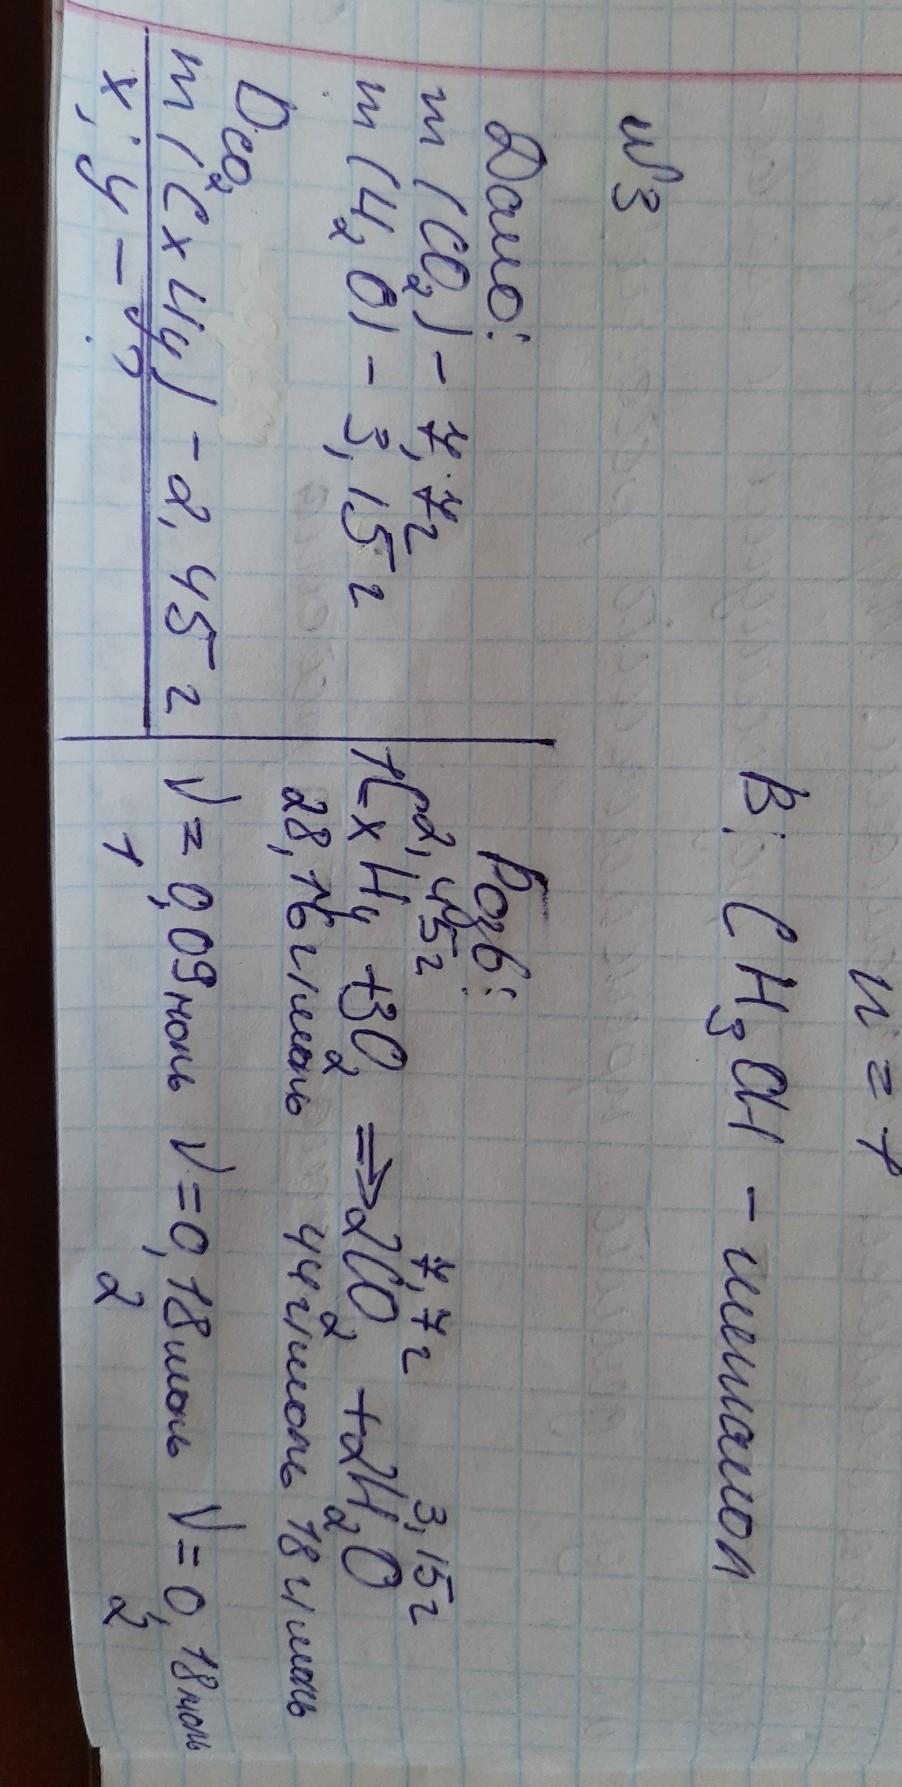 n = 1
В: CH3OH - метанол
№3
Дано:
m (CO2) - 7,7г
m (H2O) - 3,15 г
Dco2
m (CxHy) - 2,45 г
x; y - ?
Розв:
2,45г 7,7г 3,15г
1CxHy + 3O2 => 2CO2 + 2H2O
28,16г/моль 44г/моль 18г/моль
V = 0,09моль V = 0,18моль V = 0,18моль
1 2 2